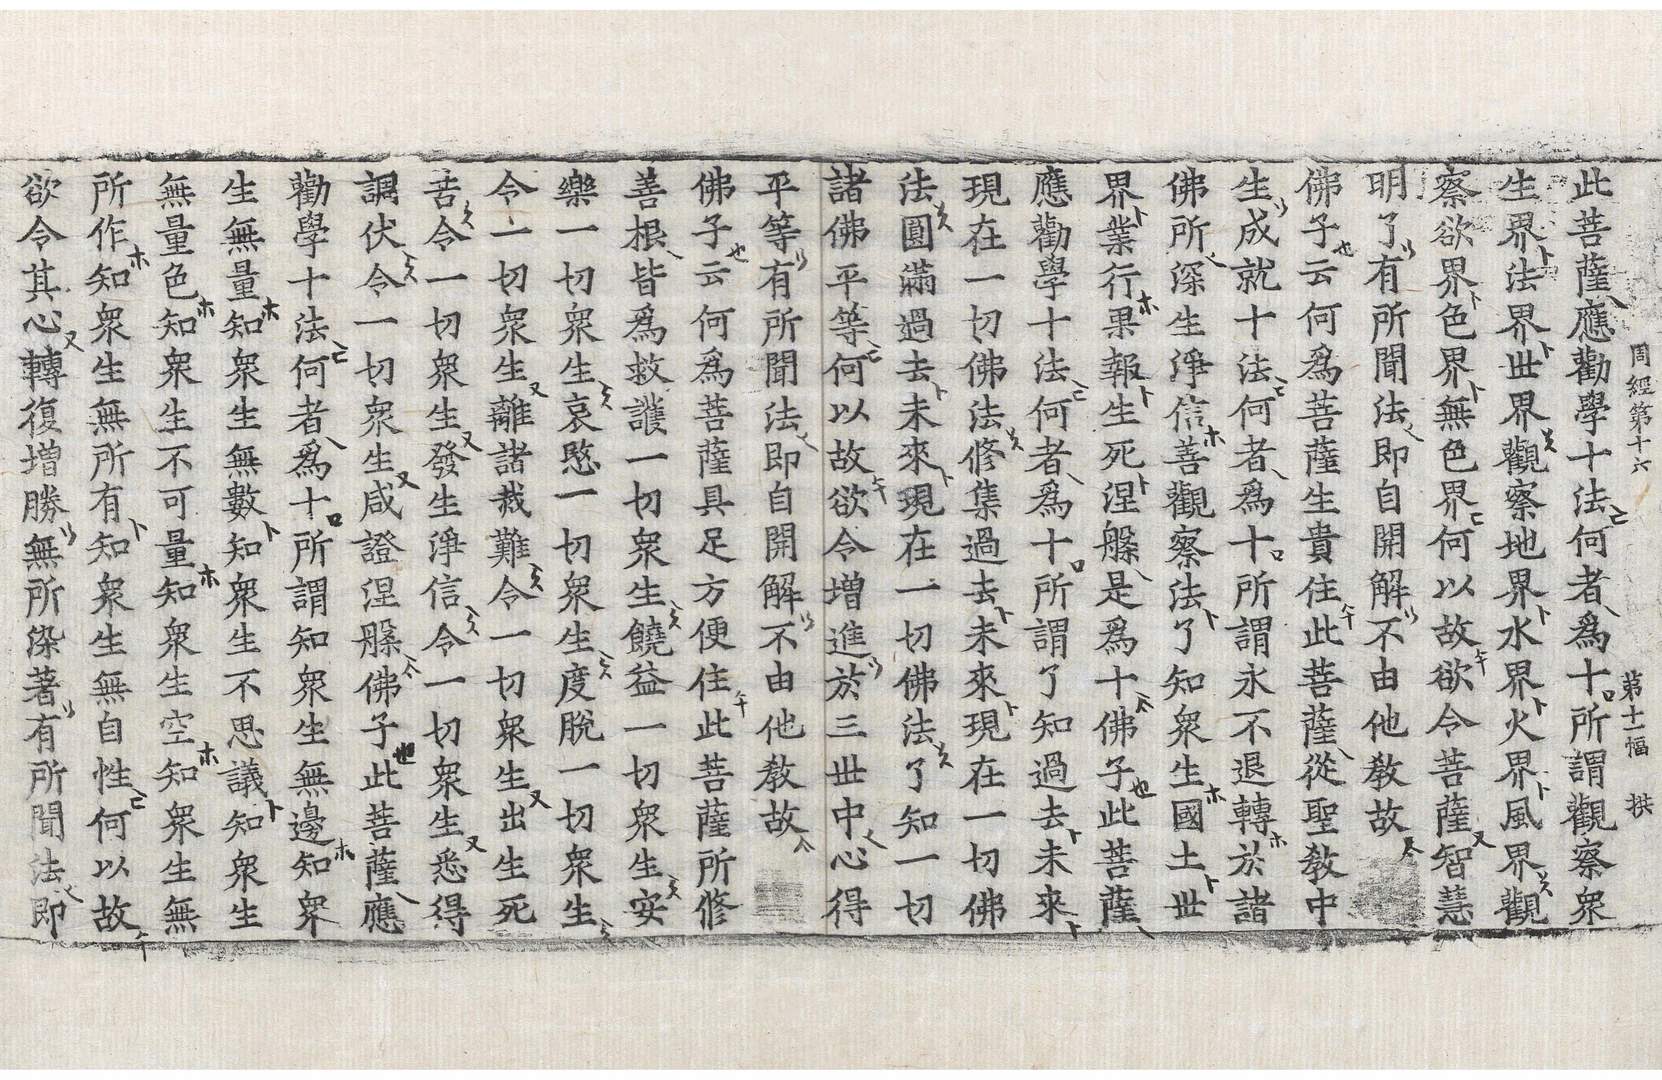 周經第十六 第十二幅 拱
此菩薩應勸學十法何者爲十所謂觀察衆
生界法界世界觀察地界水界火界風界觀
察欲界色界無色界何以故欲令菩薩智慧
明了有所聞法即自開解不由他教故
佛子云何爲菩薩生貴住此菩薩從聖教中
生成就十法何者爲十所謂永不退轉於諸
佛所深生淨信善觀察法了知衆生國土世
界業行果報生死涅槃是爲十佛子此菩薩
應勸學十法何者爲十所謂了知過去未來
現在一切佛法修集過去未來現在一切佛
法圓滿過去未來現在一切佛法了知一切
諸佛平等何以故欲令增進於三世中心得
平等有所聞法即自開解不由他教故
佛子云何爲菩薩具足方便住此菩薩所修
善根皆爲救護一切衆生饒益一切衆生安
樂一切衆生哀愍一切衆生度脫一切衆生
令一切衆生離諸災難令一切衆生出生死
苦令一切衆生發生淨信令一切衆生悉得
調伏令一切衆生咸證涅槃佛子此菩薩應
勸學十法何者爲十所謂知衆生無邊知衆
生無量知衆生無數知衆生不思議知衆生
無量色知衆生不可量知衆生空知衆生無
所作知衆生無所有知衆生無自性何以故
欲令其心轉復增勝無所染著有所聞法即